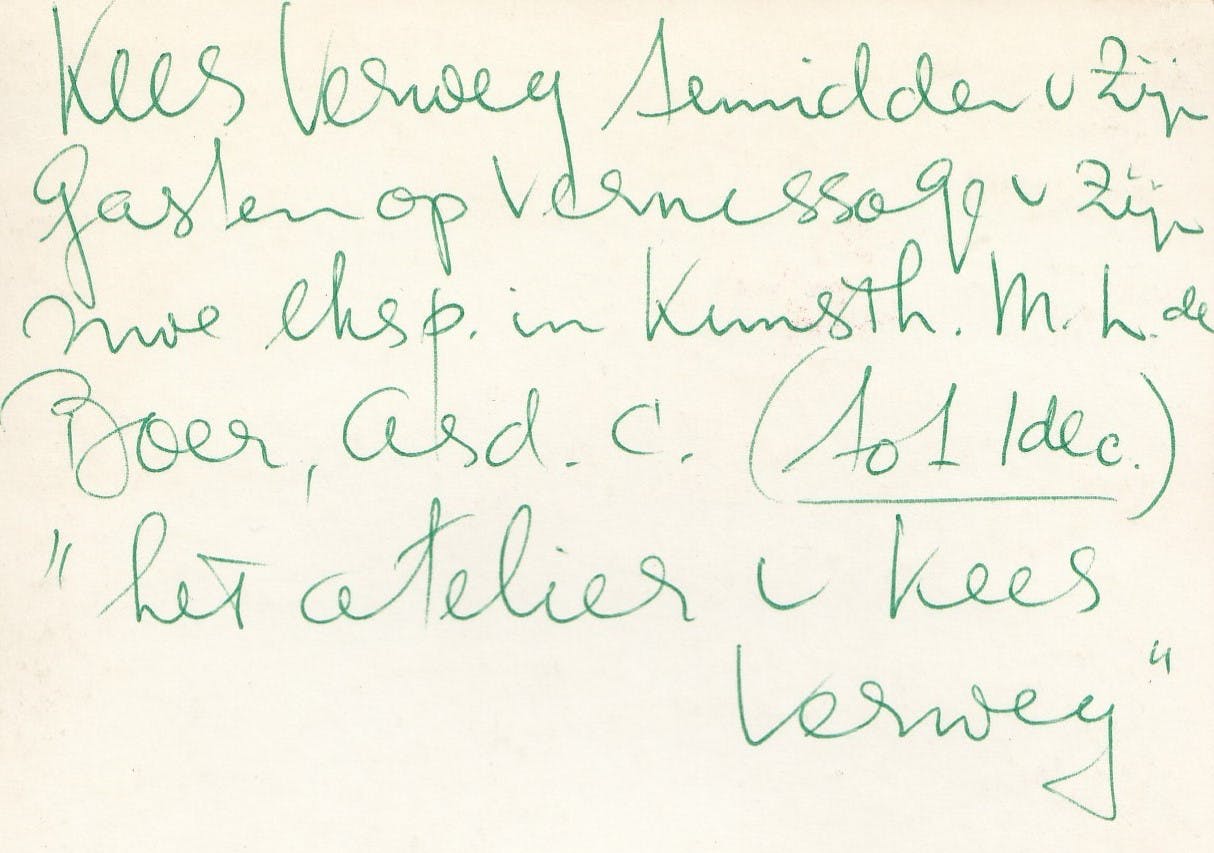 Kees Verwey temidden v zijn
gasten op vernessage v zijn
nwe eksp. in Kunsth. M. L. de
Boer, Asd. C. (tot 1 dec.)
"het atelier v Kees
Verwey"